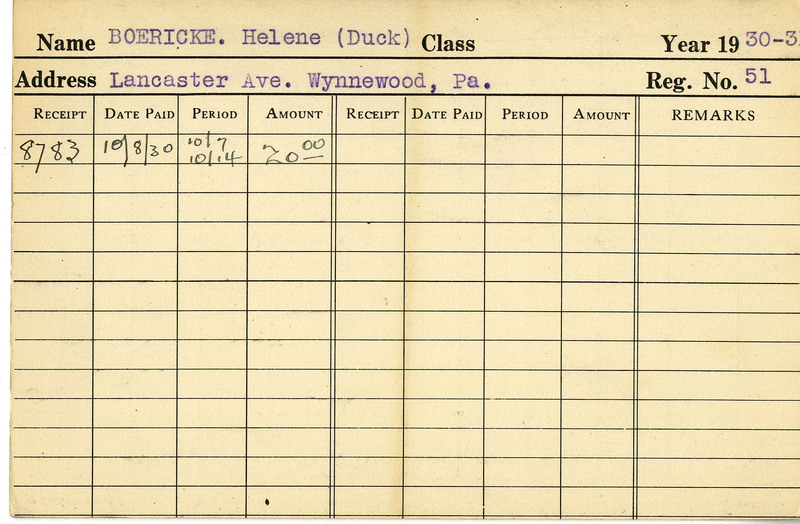 Name BOERICKE. Helene (Duck) Class Year 19 30-3
Address Lancaster Ave. Wynnewood, Pa. Reg. No. 51
RECEIPT DATE PAID PERIOD AMOUNT RECEIPT DATE PAID PERIOD AMOUNT REMARKS
8783 10/8/30 10/7 10/14 20.00